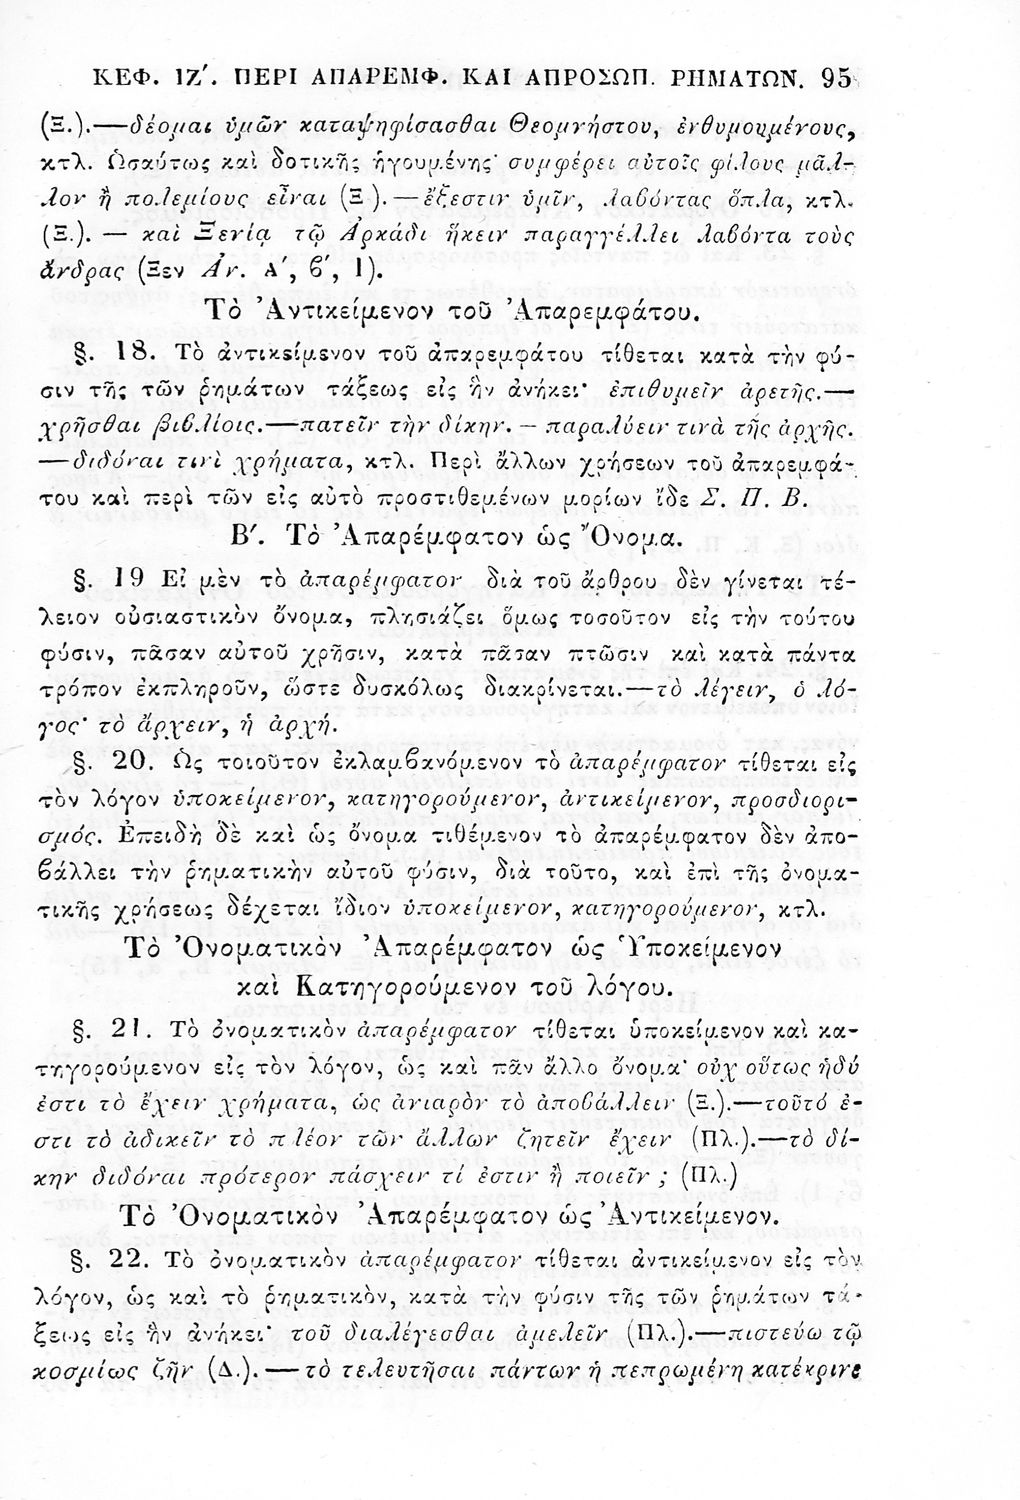 ΚΕΦ. ΙΖ΄. ΠΕΡΙ ΑΠΑΡΕΜΦ. ΚΑΙ ΑΠΡΟΣΩΠ. ΡΗΜΑΤΩΝ. 95
(Ξ.).—δέομαι ὑμῶν καταψηφίσασθαι Θεομνήστου, ἐνθυμουμένους,
κτλ. Ὡσαύτως καὶ δοτικῆς ἡγουμένης· συμφέρει αὐτοῖς φίλους μᾶλ-
λον ἢ πολεμίους εἶναι (Ξ ).—ἔξεστιν ὑμῖν, λαβόντας ὅπλα, κτλ.
(Ξ.). — καὶ Ξενίᾳ τῷ Ἀρκάδι ἥκειν παραγγέλλει λαβόντα τοὺς
ἄνδρας (Ξεν Ἀν. Α΄, β΄, 1).
Τὸ Ἀντικείμενον τοῦ Ἀπαρεμφάτου.
§. 18. Τὸ ἀντικείμενον τοῦ ἀπαρεμφάτου τίθεται κατὰ τὴν φύ-
σιν τῆς τῶν ῥημάτων τάξεως εἰς ἣν ἀνήκει· ἐπιθυμεῖν ἀρετῆς.—
χρῆσθαι βιβλίοις.—πατεῖν τὴν δίκην. — παραλύειν τινὰ τῆς ἀρχῆς.
—διδόναι τινὶ χρήματα, κτλ. Περὶ ἄλλων χρήσεων τοῦ ἀπαρεμφά-
του καὶ περὶ τῶν εἰς αὐτὸ προστιθεμένων μορίων ἴδε Σ. Π. Β.
Β΄. Τὸ Ἀπαρέμφατον ὡς Ὄνομα.
§. 19 Εἰ μὲν τὸ ἀπαρέμφατον διὰ τοῦ ἄρθρου δὲν γίνεται τέ-
λειον οὐσιαστικὸν ὄνομα, πλησιάζει ὅμως τοσοῦτον εἰς τὴν τούτου
φύσιν, πᾶσαν αὐτοῦ χρῆσιν, κατὰ πᾶσαν πτῶσιν καὶ κατὰ πάντα
τρόπον ἐκπληροῦν, ὥστε δυσκόλως διακρίνεται.—τὸ λέγειν, ὁ λό-
γος· τὸ ἄρχειν, ἡ ἀρχή.
§. 20. Ὡς τοιοῦτον ἐκλαμβανόμενον τὸ ἀπαρέμφατον τίθεται εἰς
τὸν λόγον ὑποκείμενον, κατηγορούμενον, ἀντικείμενον, προσδιορι-
σμός. Ἐπειδὴ δὲ καὶ ὡς ὄνομα τιθέμενον τὸ ἀπαρέμφατον δὲν ἀπο-
βάλλει τὴν ῥηματικὴν αὐτοῦ φύσιν, διὰ τοῦτο, καὶ ἐπὶ τῆς ὀνομα-
τικῆς χρήσεως δέχεται ἴδιον ὑποκείμενον, κατηγορούμενον, κτλ.
Τὸ Ὀνοματικὸν Ἀπαρέμφατον ὡς Ὑποκείμενον
καὶ Κατηγορούμενον τοῦ λόγου.
§. 21. Τὸ ὀνοματικὸν ἀπαρέμφατον τίθεται ὑποκείμενον καὶ κα-
τηγορούμενον εἰς τὸν λόγον, ὡς καὶ πᾶν ἄλλο ὄνομα· οὐχ οὕτως ἡδύ
ἐστι τὸ ἔχειν χρήματα, ὡς ἀνιαρὸν τὸ ἀποβάλλειν (Ξ.).—τοῦτό ἐ-
στι τὸ ἀδικεῖν τὸ πλέον τῶν ἄλλων ζητεῖν ἔχειν (Πλ.).—τὸ δί-
κην διδόναι πρότερον πάσχειν τί ἐστιν ἢ ποιεῖν ; (Πλ.)
Τὸ Ὀνοματικὸν Ἀπαρέμφατον ὡς Ἀντικείμενον.
§. 22. Τὸ ὀνοματικὸν ἀπαρέμφατον τίθεται ἀντικείμενον εἰς τὸν
λόγον, ὡς καὶ τὸ ῥηματικὸν, κατὰ τὴν φύσιν τῆς τῶν ῥημάτων τά-
ξεως εἰς ἣν ἀνήκει· τοῦ διαλέγεσθαι ἀμελεῖν (Πλ.).—πιστεύω τῷ
κοσμίως ζῆν (Δ.).—τὸ τελευτῆσαι πάντων ἡ πεπρωμένη κατέκρινε